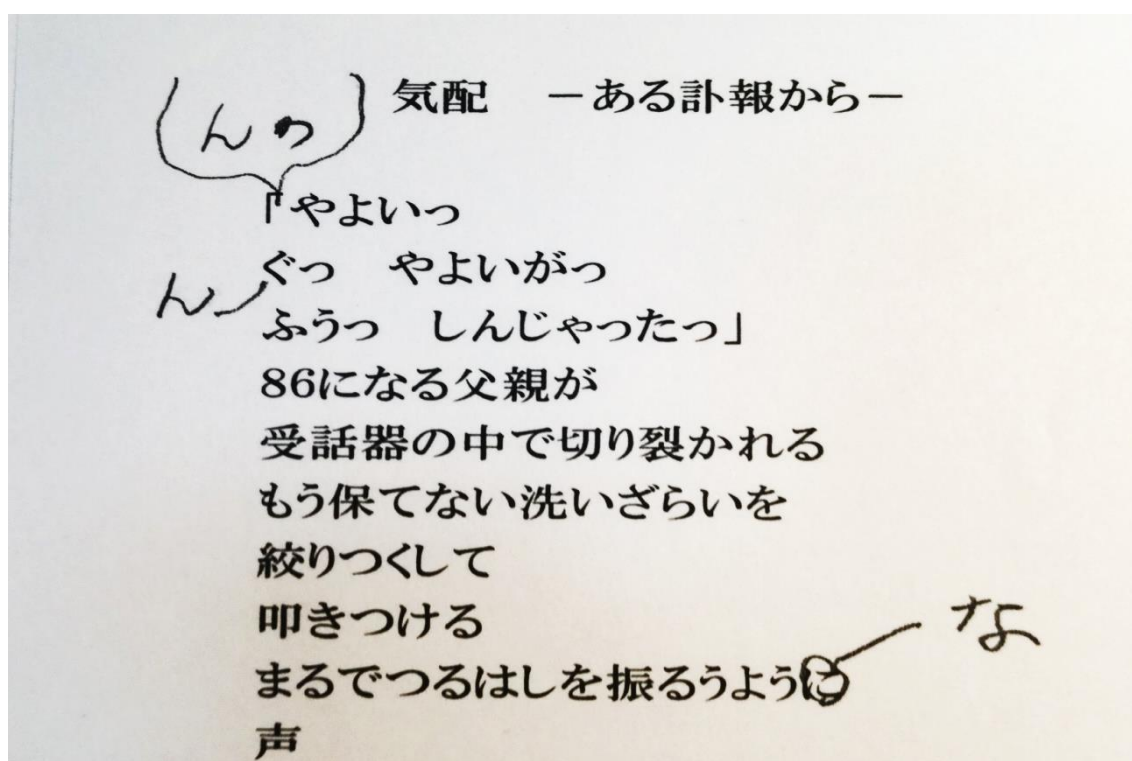 気配　－ある訃報から－
んの
「やよいっ
ぐっ　やよいがっ
ん
ふうっ　しんじゃったっ」
86になる父親が
受話器の中で切り裂かれる
もう保てない洗いざらいを
絞りつくして
叩きつける
な
まるでつるはしを振るうように
声